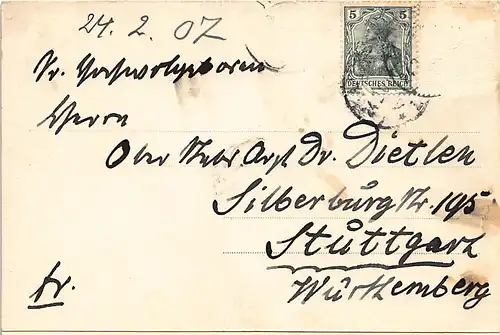 24. 2. 07
5 5
DEUTSCHES REICH
Sr. Hochwohlgeboren
Herrn
Ober Stabs Arzt Dr. Dietlen
Silberburgstr. 195
Stuttgart
fr. Württemberg